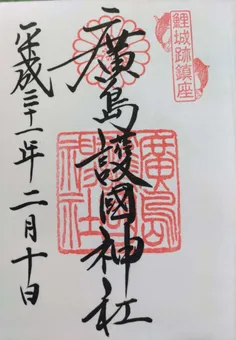 鯉城跡鎮座
廣島護國神社
廣島
神社
平成三十一年二月十日